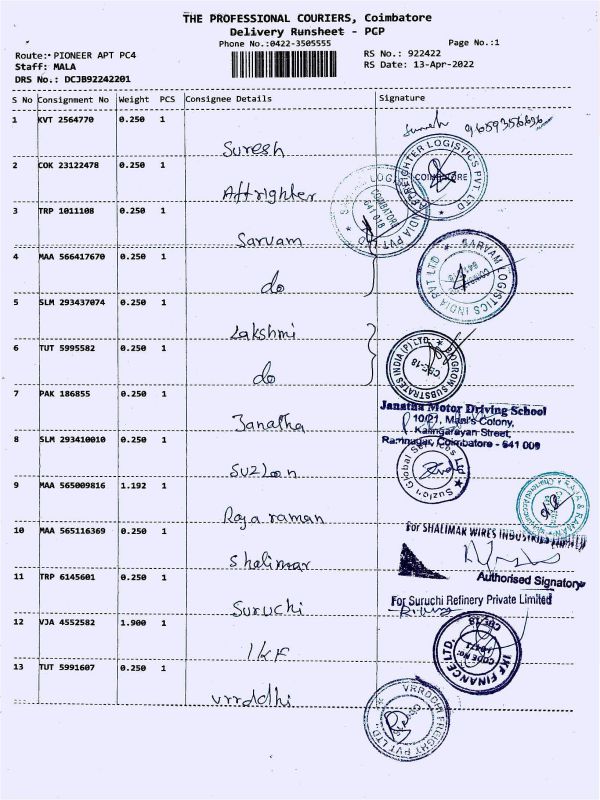 THE PROFESSIONAL COURIERS, Coimbatore
Delivery Runsheet - PCP
Phone No.:0422-3505555
Page No.:1
Route: PIONEER APT PC4
RS No.: 922422
Staff: MALA
RS Date: 13-Apr-2022
DRS No.: DCJB92242201
S No Consignment No Weight PCS Consignee Details Signature
1 KVT 2564770 0.250 1 Suresh
Suresh 9659356696
2 COK 23122478 0.250 1 Affrighter
FREIGHTER LOGISTICS PVT LTD
COIMBATORE
3 TRP 1011108 0.250 1 Sarvam
COIMBATORE
641 018
4 MAA 566417670 0.250 1 do
SARVAM LOGISTICS INDIA PVT LTD
5 SLM 293437074 0.250 1 Lakshmi
6 TUT 5995582 0.250 1 do
BIOGROW SUBSTRATES INDIA (P) LTD
CBE-18
7 PAK 186855 0.250 1 Janatha
Janatha Motor Driving School
10/21, Mani's Colony,
Kalingarayan Street,
Ramnagar, Coimbatore - 641 009
8 SLM 293410010 0.250 1 Suzlon
Suzlon Global Services Ltd
9 MAA 565009816 1.192 1 Raja raman
RAJA & RAMAN
10 MAA 565116369 0.250 1 Shalimar
For SHALIMAR WIRES INDUSTRIES LIMITED
Authorised Signatory
11 TRP 6145601 0.250 1 Suruchi
For Suruchi Refinery Private Limited
12 VJA 4552582 1.900 1 IKF
IKF FINANCE LTD.
CODE No:
CBE-18
13 TUT 5991607 0.250 1 vrrddhi
VRRDDHI FREIGHT PVT LTD